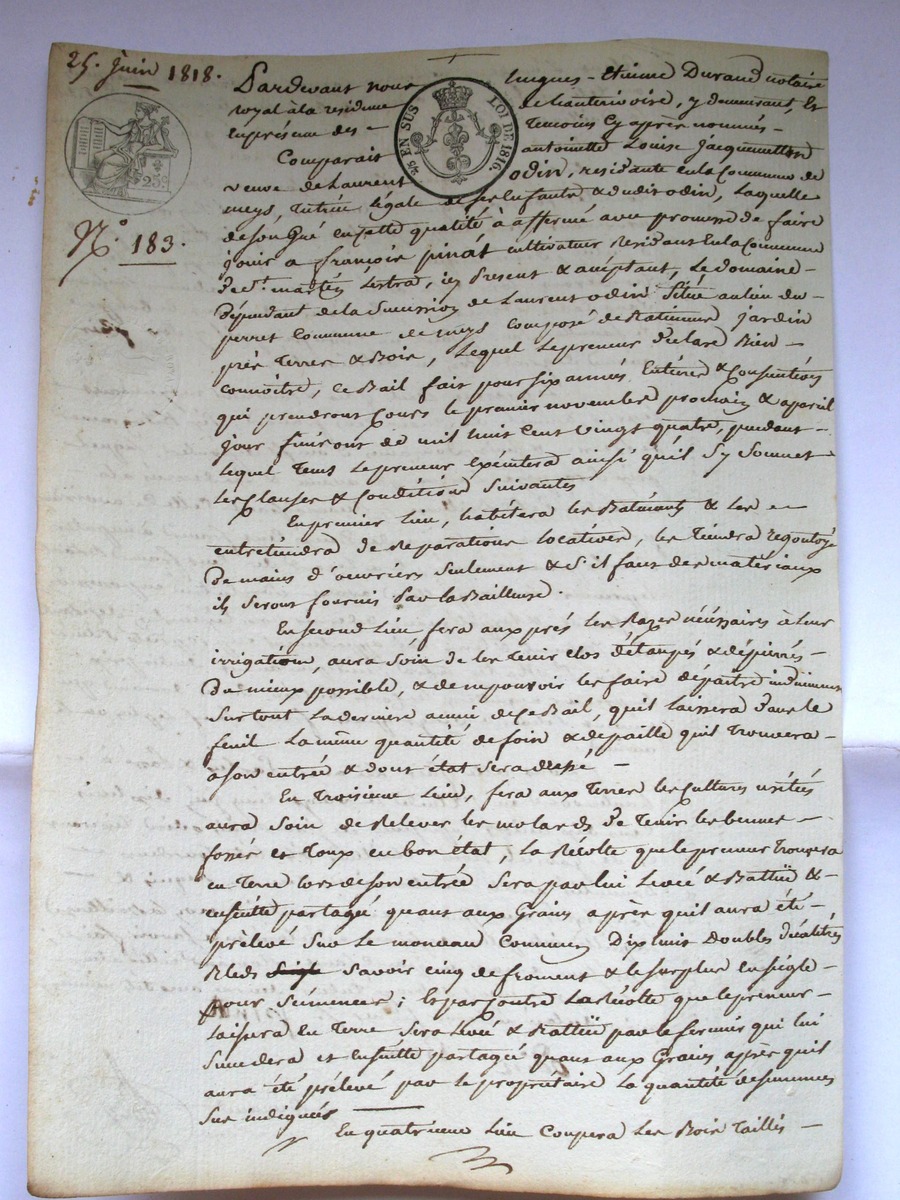 25. juin 1818.
N.o 183.
25c.
4/5 EN SUS LOI DE 1816.
Pardevant nous hugues-etienne Durand notaire
royal à la residence de hauterivoire, y demeurant, Et
En présence des temoins Cy après nommés -
Comparait antoinette Louise jacquemetton
veuve de Laurent odin, residante en la Commune de
meys, tutrice légale de ses Enfants & dudit odin, Laquelle
de son Gré en cette qualité à affermé avec promesse de faire
jouir a françois pinat cultivateur Residant En la Commune
de St. martin Lestra, icy Present & acceptant, Le domaine -
dépendant de la Succession de Laurent odin Situé au lieu du -
perret Commune de meys Composé de Batiments jardin
prés terres & Bois, Lequel Le preneur déclare Bien -
connoitre, Ce Bail fait pour six années Entières & Consécutives
qui prendront Cours le premier novembre prochain & a pareil
jour finiront de mil huit Cent vingt quatre, pendant -
lequel tems Le preneur Exécutera ainsi qu'il S'y Soumet
Les Clauses & Conditions Suivantes
En premier Lieu, habitera les Batiments & Les -
entretiendra de Reparations locatives, les tiendra regoutoyés
de mains d'ouvriers Seulement & S'il faut des matériaux
ils Seront fournis Par la Bailleuse.
En Second Lieu, fera aux prés les Razes nécéssaires à leur
irrigation, aura Soin de les tenir clos détaupés & dépierrés -
du mieux possible, & de ne pouvoir les faire dépaitre induement
Surtout La derniere année de Ce Bail, qu'il laissera dans le
fenil La même quantité de foin & de paille qu'il trouvera -
a son entrée & dont état Sera dressé -
En troisieme Lieu, fera aux terres les Cultures usitées
aura Soin de Relever les molards de tenir les bennes -
fossés et Toux en bon état, La Récolte que le preneur trouvera
en terre lors de son entrée Sera par lui Levée & Battüe & -
ensuitte partagée quant aux Grains après qu'il aura été -
prélevé Sur Le monceau Commun Dix huit Doubles décalitres
Bleds Seigle Savoir cinq de froment & le surplus en Seigle -
pour Sémences; Et par Contre La Récolte que le preneur -
laissera En terre Sera Levée & Battüe par le fermier qui lui
Succedera et ensuitte partagée quant aux Grains après qu'il
aura été prélevé par le propriétaire La quantité de semences
Sus indiquées
En quatrieme Lieu Coupera Les Bois taillis -